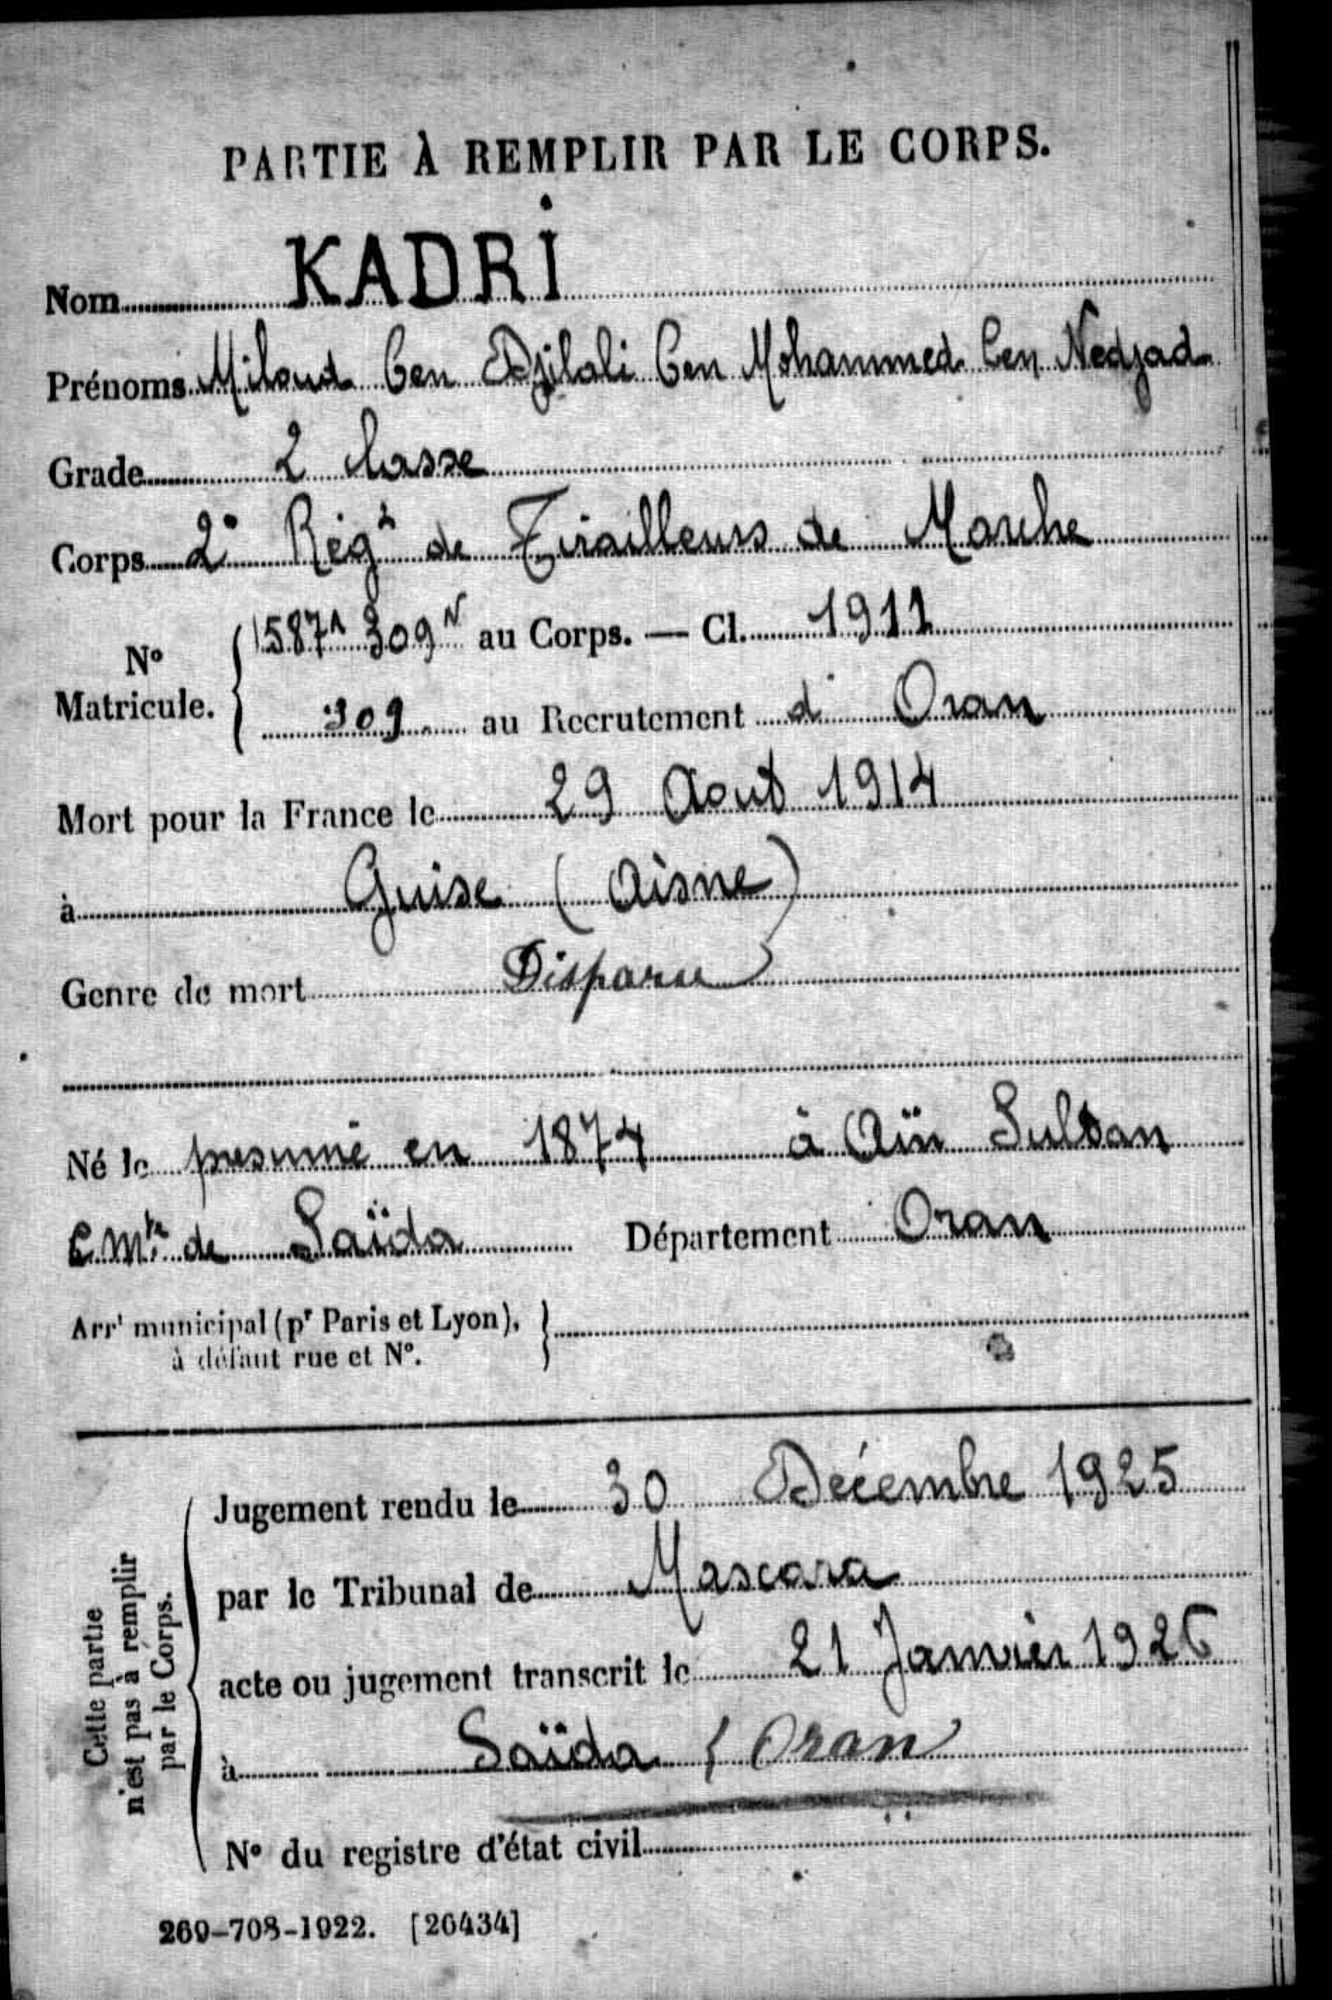 PARTIE À REMPLIR PAR LE CORPS.
Nom KADRI
Prénoms Miloud ben Djilali ben Mohammed ben Nedjad
Grade 2 classe
Corps 2° Régt de Tirailleurs de Marche
N° Matricule. { 1587A 309N au Corps. — Cl. 1911
309 au Recrutement d' Oran
Mort pour la France le 29 Aout 1914
à Guise (Aisne)
Genre de mort Disparu
Né le présumé en 1874 à Aïn Sultan
C Mte de Saïda Département Oran
Arrt municipal (pr Paris et Lyon), }
à défaut rue et N°.
Cette partie
n'est pas à remplir
par le Corps.
Jugement rendu le 30 Décembre 1925
par le Tribunal de Mascara
acte ou jugement transcrit le 21 Janvier 1926
à Saïda ( Oran
N° du registre d'état civil
269-708-1922. [26434]